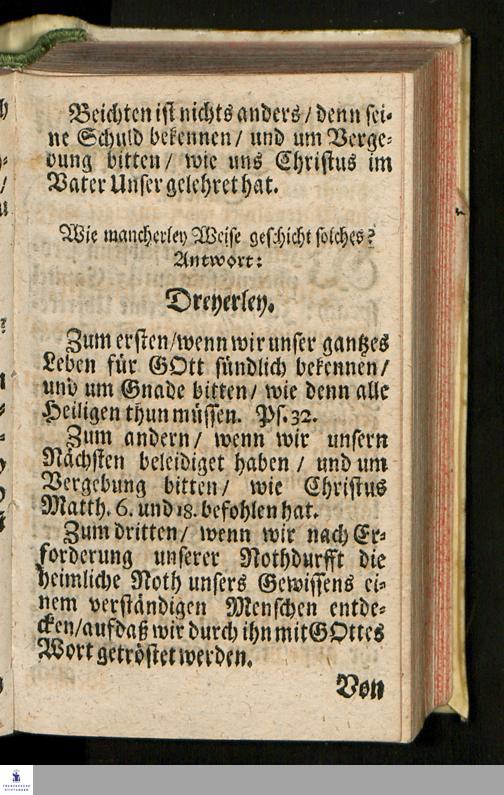 Beichten ist nichts anders / denn sei-
ne Schuld bekennen / und um Verge-
bung bitten / wie uns Christus im
Vater Unser gelehret hat.
Wie mancherley Weise geschicht solches?
Antwort:
Dreyerley.
Zum ersten / wenn wir unser gantzes
Leben für GOtt sündlich bekennen /
und um Gnade bitten / wie denn alle
Heiligen thun müssen. Ps. 32.
Zum andern / wenn wir unsern
Nächsten beleidiget haben / und um
Vergebung bitten / wie Christus
Matth. 6. und 18. befohlen hat.
Zum dritten / wenn wir nach Er-
forderung unserer Nothdurfft die
heimliche Noth unsers Gewissens ei-
nem verständigen Menschen entde-
cken / auf daß wir durch ihn mit GOttes
Wort getröstet werden.
Von
FRANCKESCHE
STIFTUNGEN